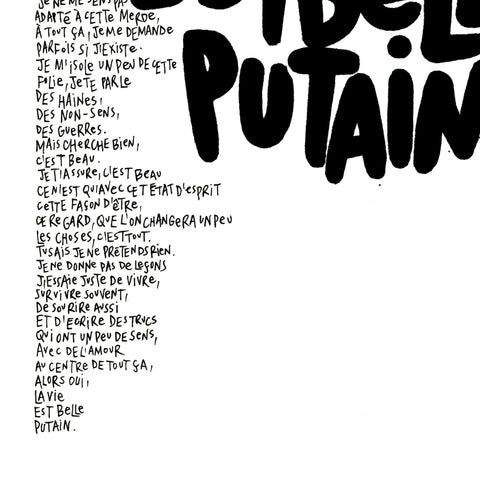 JE NE ME SENS PAS
ADAPTÉ À CETTE MERDE,
À TOUT ÇA, JE ME DEMANDE
PARFOIS SI J'EXISTE.
JE M'ISOLE UN PEU DE CETTE
FOLIE, JE TE PARLE
DES HAINES,
DES NON-SENS,
DES GUERRES.
MAIS CHERCHE BIEN,
C'EST BEAU.
JE T'ASSURE, C'EST BEAU
CE N'EST QU'AVEC CET ÉTAT D'ESPRIT
CETTE FAÇON D'ÊTRE,
CE REGARD, QUE L'ON CHANGERA UN PEU
LES CHOSES, C'EST TOUT.
TU SAIS JE NE PRÉTENDS RIEN.
JE NE DONNE PAS DE LEÇONS
J'ESSAIE JUSTE DE VIVRE,
SURVIVRE SOUVENT,
DE SOURIRE AUSSI
ET D'ÉCRIRE DES TRUCS
QUI ONT UN PEU DE SENS,
AVEC DE L'AMOUR
AU CENTRE DE TOUT ÇA,
ALORS OUI,
LA VIE
EST BELLE
PUTAIN.
EST BELLE
PUTAIN